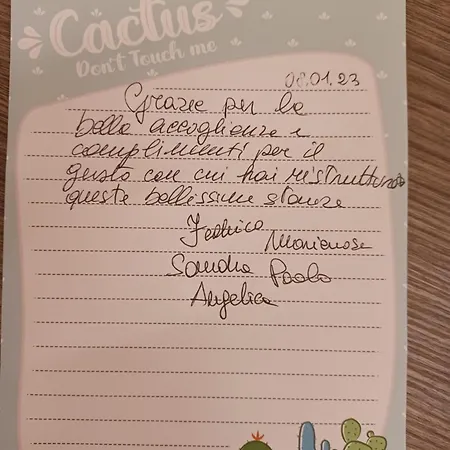 Cactus
Don't Touch me
08.01.23
Grazie per la
bella accoglienza e
complimenti per il
gusto con cui hai ristrutturato
queste bellissime stanze
Federica
Marianosa
Sandra Paolo
Angelica